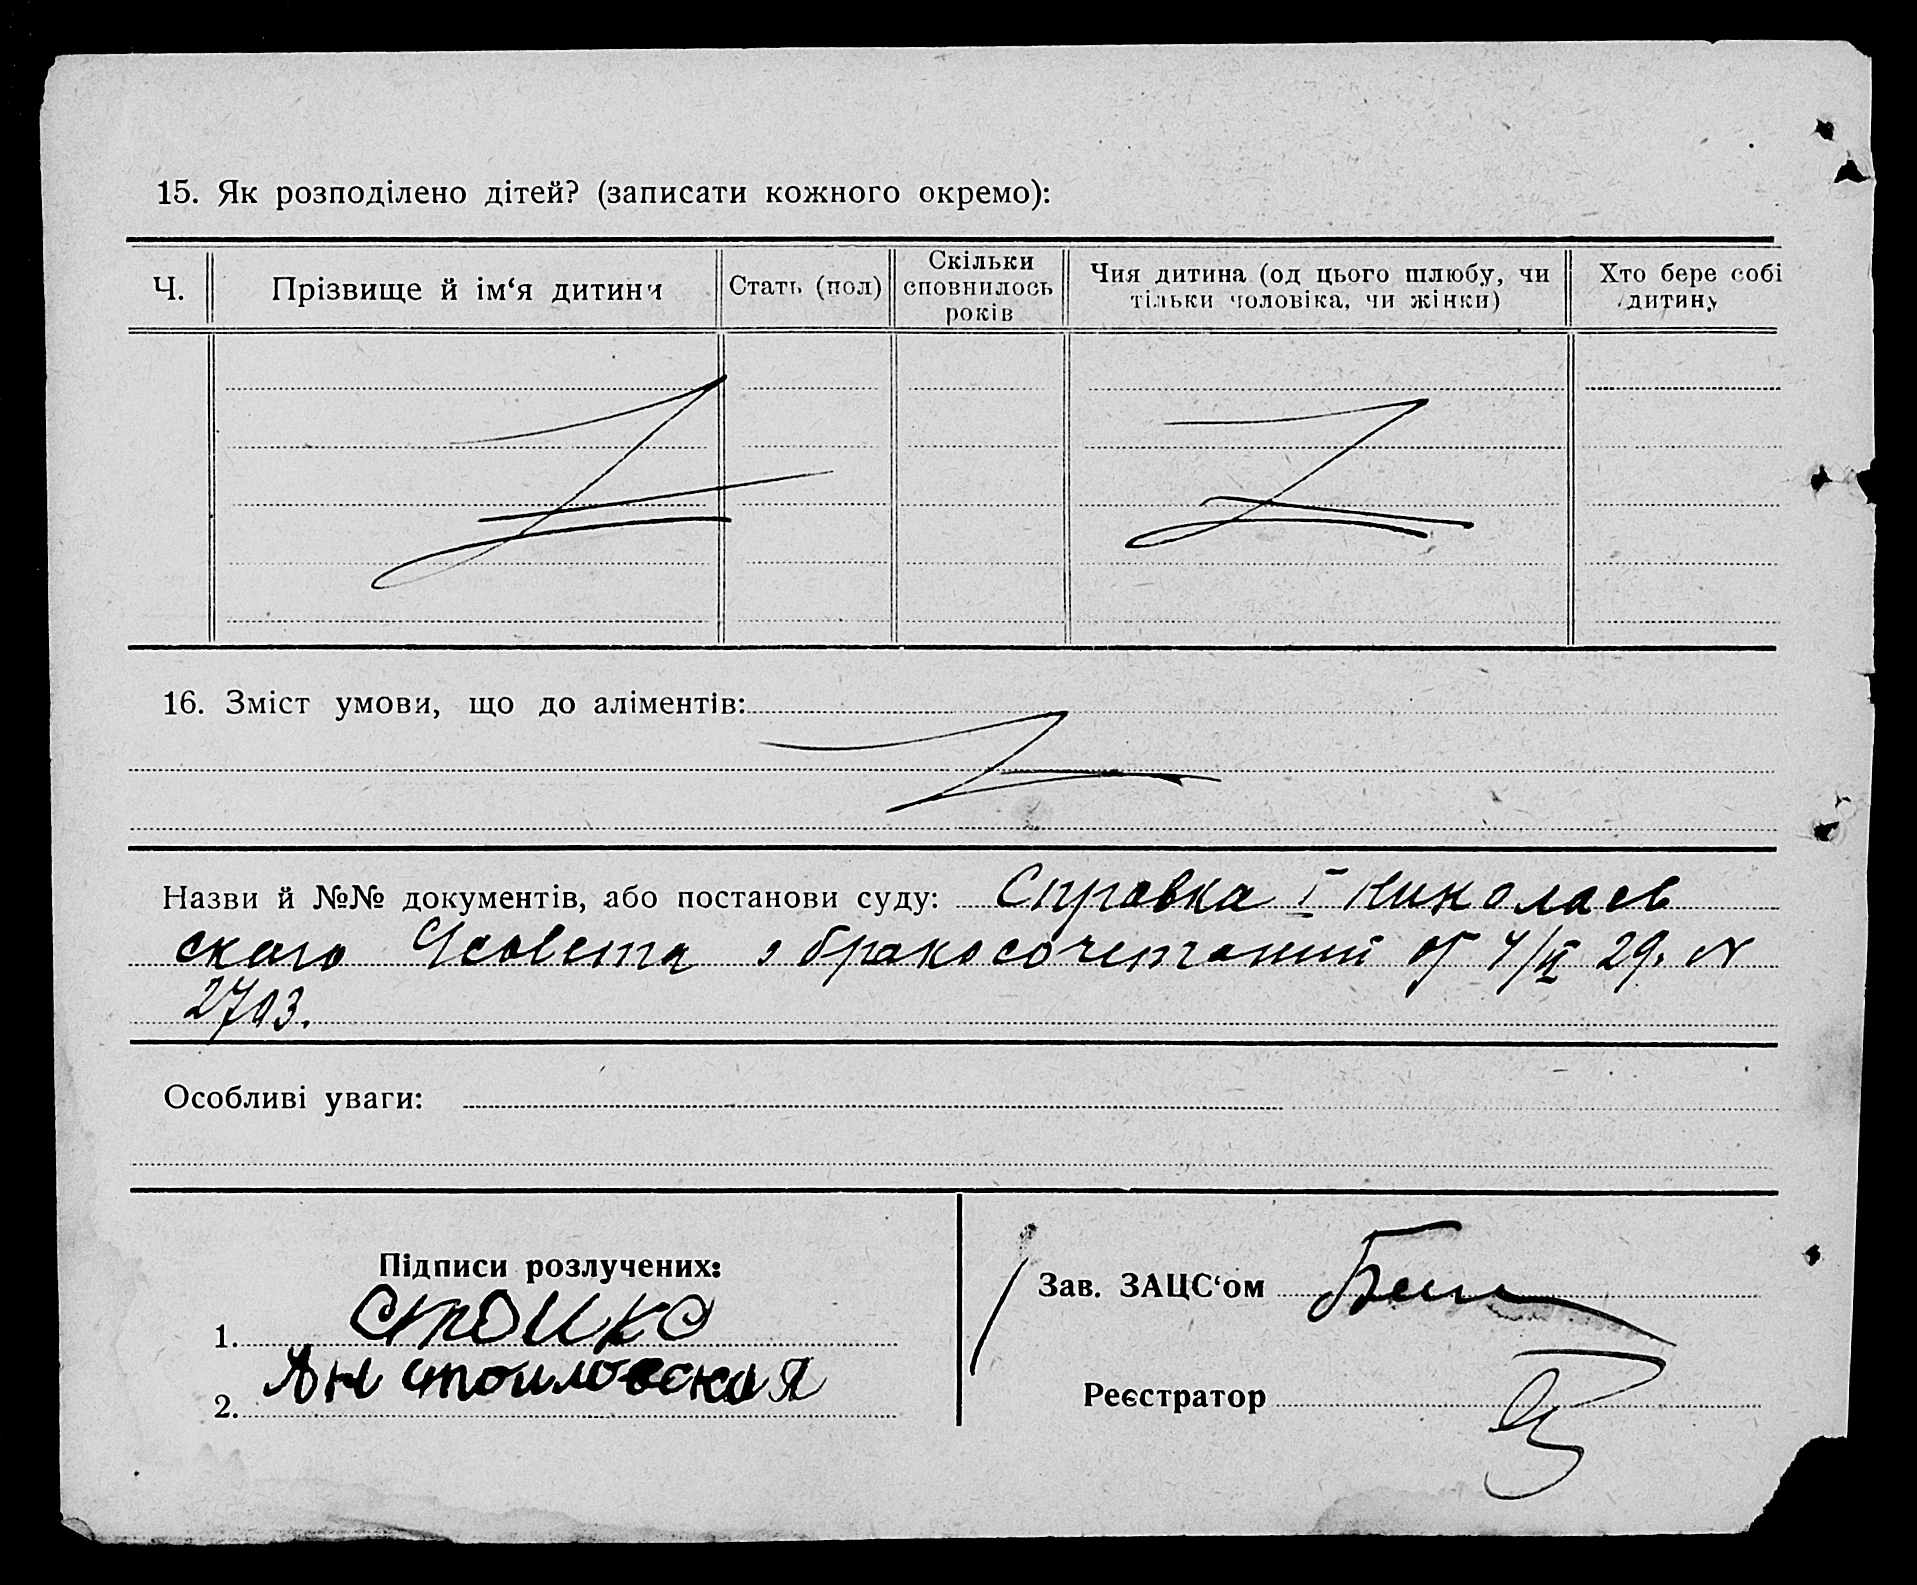 15. Як розподілено дітей? (записати кожного окремо):
Ч.
Прізвище й ім‘я дитини
Стать (пол)
Скільки
сповнилось
років
Чия дитина (од цього шлюбу, чи
тільки чоловіка, чи жінки)
Хто бере собі
дитину
16. Зміст умови, що до аліментів:
Назви й №№ документів, або постанови суду: Справка I Николаев
ского о бракосочетании от 29. N
2703.
Особливі уваги:
Підписи розлучених:
1. Стойко
2.
Зав. ЗАЦС‘ом
Реєстратор